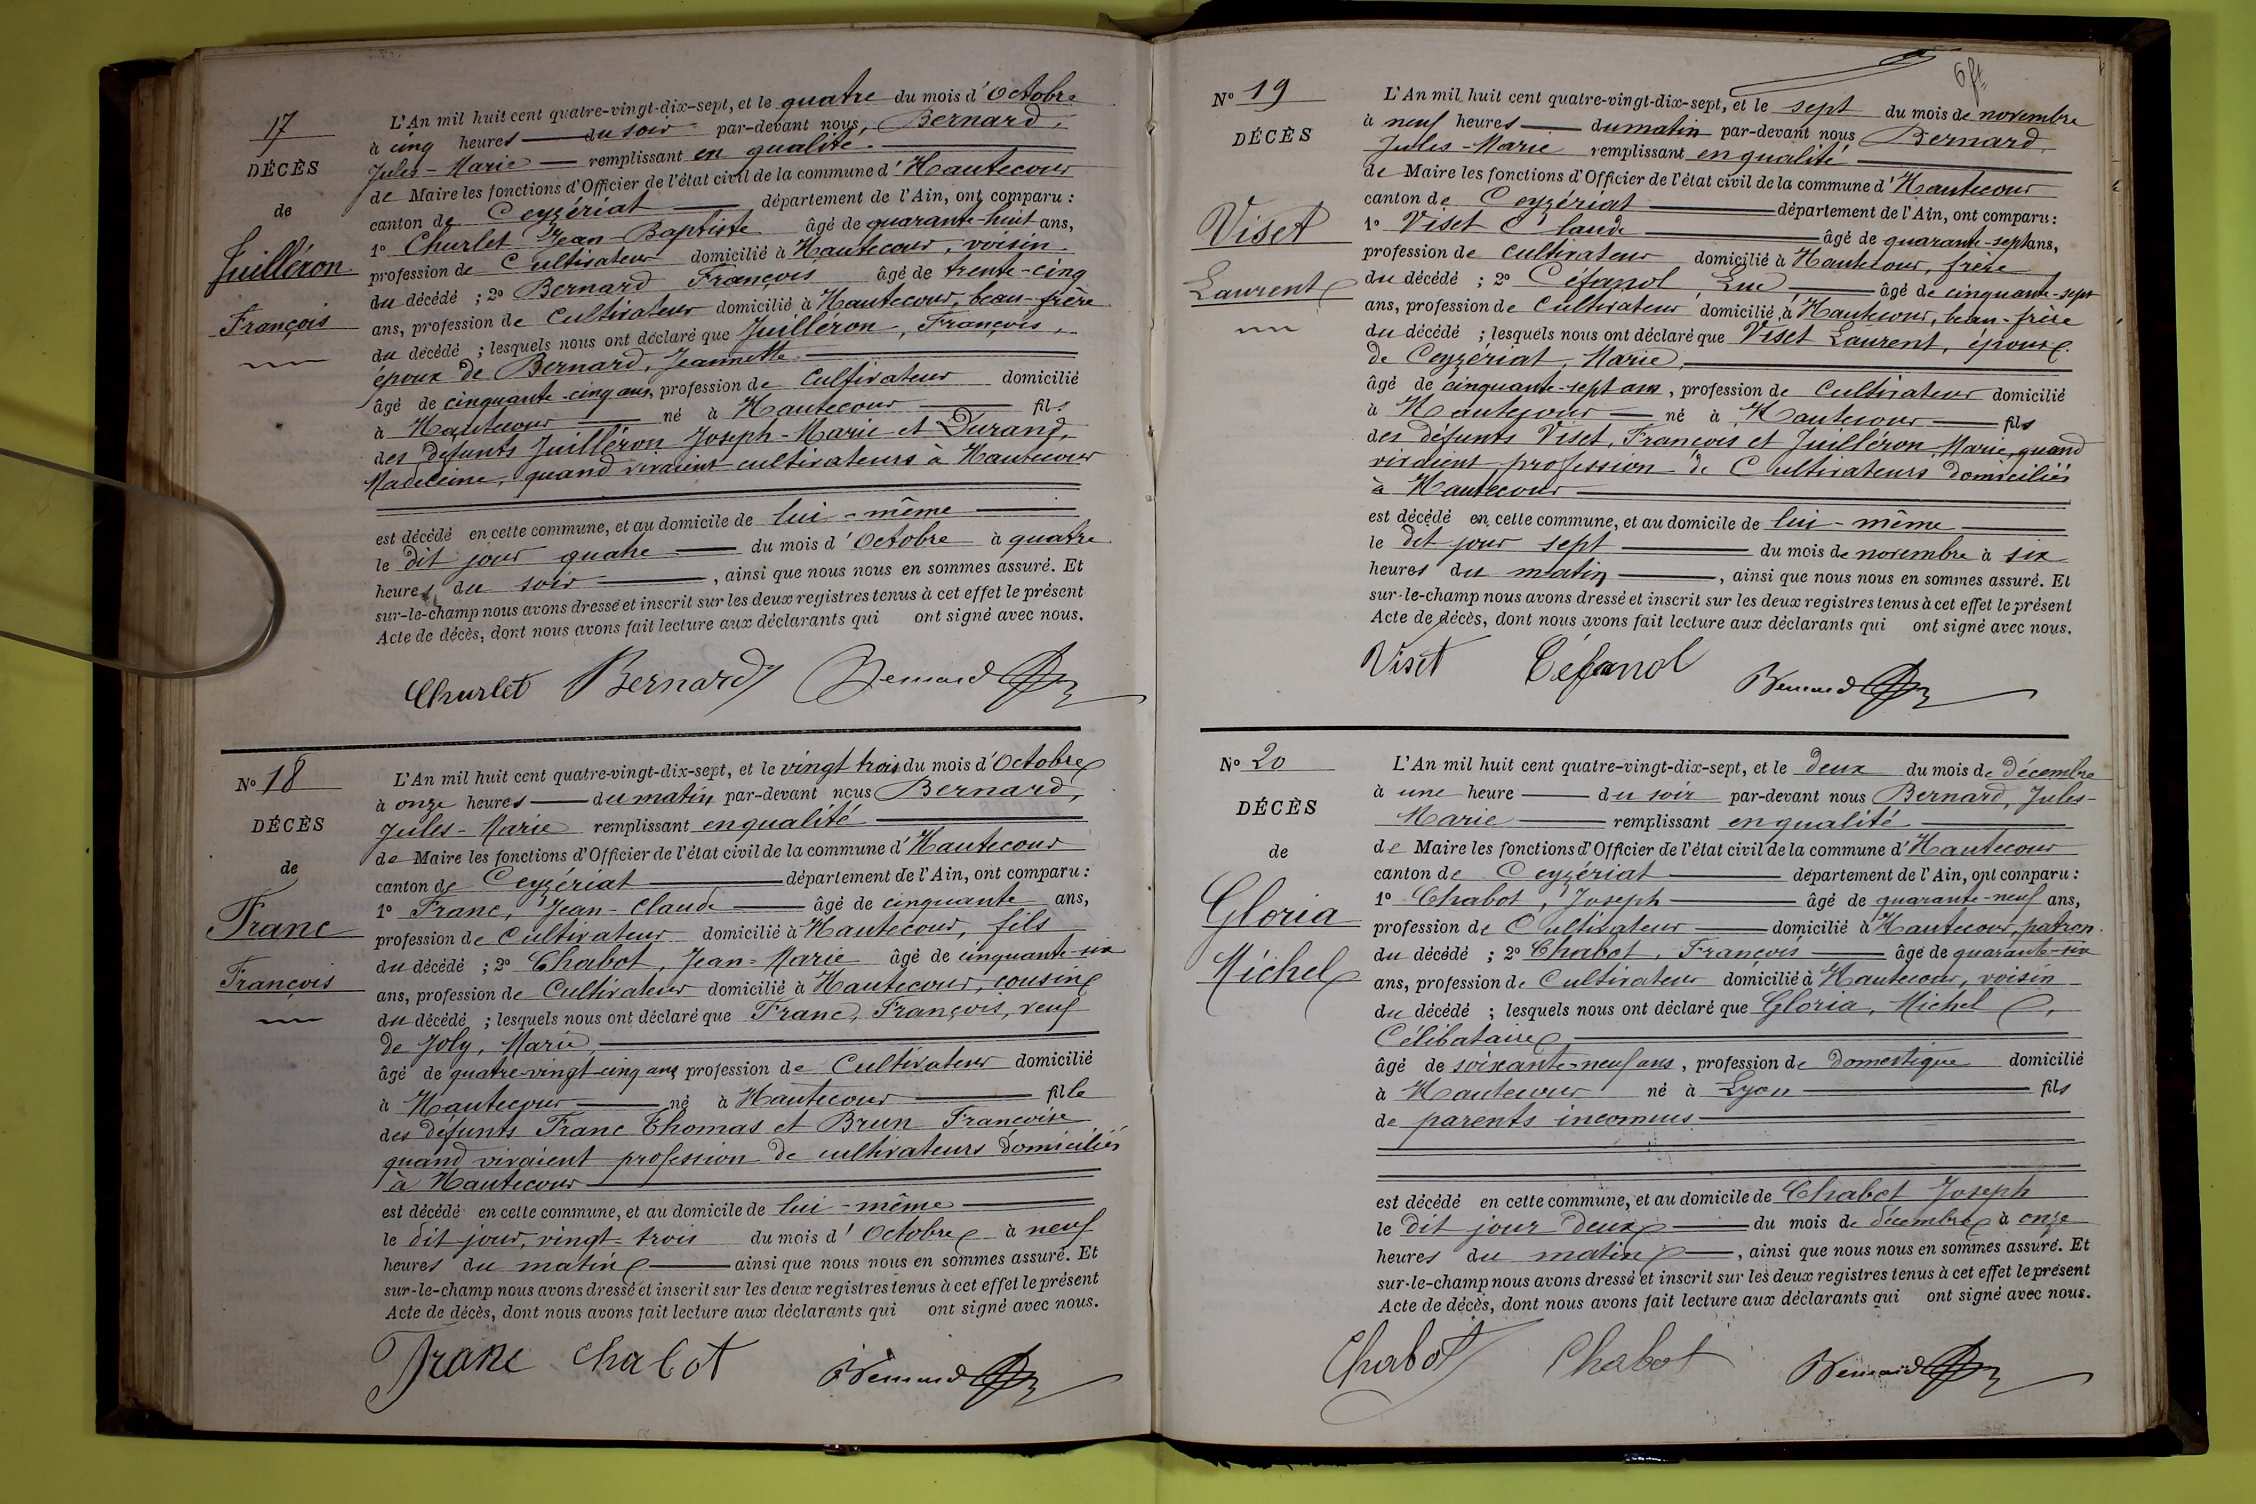 17
DÉCÈS
de
Juilléron
François
L'An mil huit cent quatre-vingt-dix-sept, et le quatre du mois d'Octobre
à cinq heures du soir par-devant nous, Bernard,
Jules-Marie remplissant en qualité
de Maire les fonctions d'Officier de l'état civil de la commune d'Hautecour
canton de Ceyzériat département de l'Ain, ont comparu :
1º Churlet Jean-Baptiste âgé de quarante-huit ans,
profession de Cultivateur domicilié à Hautecour, voisin
du décédé ; 2º Bernard François âgé de trente-cinq
ans, profession de Cultivateur domicilié à Hautecour, beau-frère
du décédé ; lesquels nous ont déclaré que Juilléron, François,
époux de Bernard, Jeannette
âgé de cinquante-cinq ans, profession de Cultivateur domicilié
à Hautecour né à Hautecour fils
des défunts Juilléron Joseph-Marie et Durand,
Madeleine, quand vivaient cultivateurs à Hautecour
est décédé en cette commune, et au domicile de lui-même
le dit jour quatre du mois d'Octobre à quatre
heures du soir, ainsi que nous nous en sommes assuré. Et
sur-le-champ nous avons dressé et inscrit sur les deux registres tenus à cet effet le présent
Acte de décès, dont nous avons fait lecture aux déclarants qui ont signé avec nous.
Churlet Bernard Bernard
Nº 18
DÉCÈS
de
Franc
François
L'An mil huit cent quatre-vingt-dix-sept, et le vingt trois du mois d'Octobre
à onze heures du matin par-devant nous Bernard,
Jules-Marie remplissant en qualité
de Maire les fonctions d'Officier de l'état civil de la commune d'Hautecour
canton de Ceyzériat département de l'Ain, ont comparu :
1º Franc, Jean-Claude âgé de cinquante ans,
profession de Cultivateur domicilié à Hautecour, fils
du décédé ; 2º Chabot, Jean-Marie âgé de cinquante-six
ans, profession de Cultivateur domicilié à Hautecour, cousin
du décédé ; lesquels nous ont déclaré que Franc, François, veuf
de Joly, Marie,
âgé de quatre-vingt-cinq ans profession de Cultivateur domicilié
à Hautecour né à Hautecour fille
des défunts Franc Thomas et Brun Françoise
quand vivaient profession de cultivateurs domiciliés
à Hautecour
est décédé en cette commune, et au domicile de lui-même
le dit jour, vingt-trois du mois d'Octobre à neuf
heures du matin ainsi que nous nous en sommes assuré. Et
sur-le-champ nous avons dressé et inscrit sur les deux registres tenus à cet effet le présent
Acte de décès, dont nous avons fait lecture aux déclarants qui ont signé avec nous.
Franc Chabot Bernard
Nº 19
DÉCÈS
Viset
Laurent
L'An mil huit cent quatre-vingt-dix-sept, et le sept du mois de novembre
à neuf heures du matin par-devant nous Bernard
Jules-Marie remplissant en qualité
de Maire les fonctions d'Officier de l'état civil de la commune d'Hautecour
canton de Ceyzériat département de l'Ain, ont comparu :
1º Viset Claude âgé de quarante-sept ans,
profession de cultivateur domicilié à Hautecour, frère
du décédé ; 2º Céfanol, Luc, âgé de cinquante-sept
ans, profession de Cultivateur domicilié à Hautecour, beau-frère
du décédé ; lesquels nous ont déclaré que Viset Laurent, époux
de Ceyzériat, Marie,
âgé de cinquante-sept ans, profession de Cultivateur domicilié
à Hautecour né à Hautecour fils
des défunts Viset, François et Juilléron, Marie, quand
vivaient profession de Cultivateurs domiciliés
à Hautecour
est décédé en cette commune, et au domicile de lui-même
le dit jour sept du mois de novembre à six
heures du matin, ainsi que nous nous en sommes assuré. Et
sur-le-champ nous avons dressé et inscrit sur les deux registres tenus à cet effet le présent
Acte de décès, dont nous avons fait lecture aux déclarants qui ont signé avec nous.
Viset Céfanol Bernard
Nº 20
DÉCÈS
de
Gloria
Michel
L'An mil huit cent quatre-vingt-dix-sept, et le deux du mois de décembre
à une heure du soir par-devant nous Bernard, Jules-
Marie remplissant en qualité
de Maire les fonctions d'Officier de l'état civil de la commune d'Hautecour
canton de Ceyzériat département de l'Ain, ont comparu :
1º Chabot, Joseph âgé de quarante-neuf ans,
profession de Cultivateur domicilié à Hautecour, patron
du décédé ; 2º Chabot, François âgé de quarante-six
ans, profession de Cultivateur domicilié à Hautecour, voisin
du décédé ; lesquels nous ont déclaré que Gloria, Michel,
Célibataire
âgé de soixante-neuf ans, profession de domestique domicilié
à Hautecour né à Lyon fils
de parents inconnus
est décédé en cette commune, et au domicile de Chabot Joseph
le dit jour deux du mois de décembre à onze
heures du matin, ainsi que nous nous en sommes assuré. Et
sur-le-champ nous avons dressé et inscrit sur les deux registres tenus à cet effet le présent
Acte de décès, dont nous avons fait lecture aux déclarants qui ont signé avec nous.
Chabot Chabot Bernard